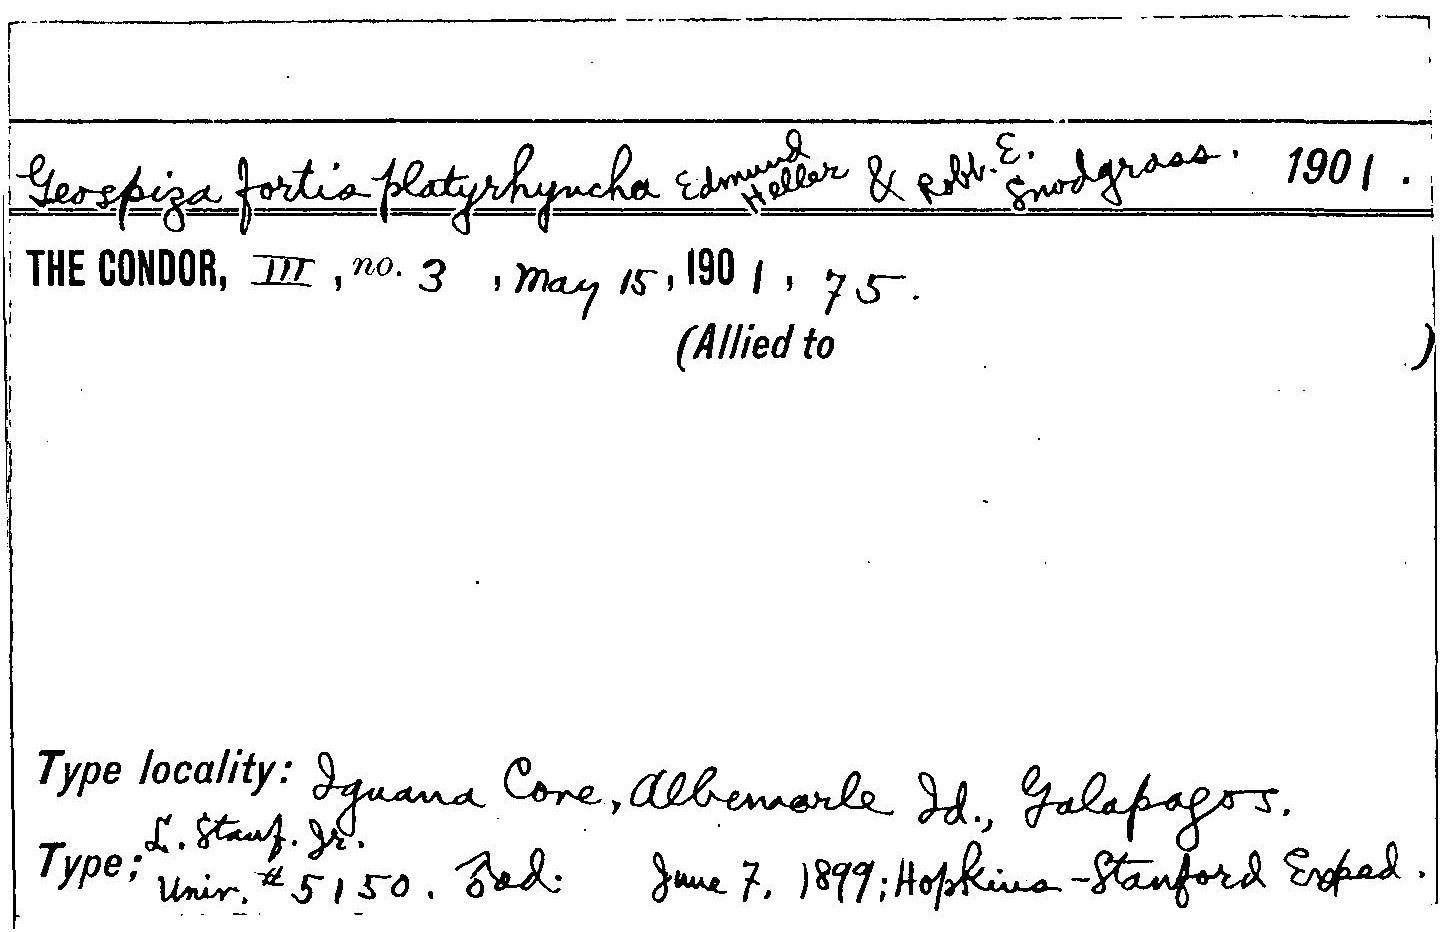 Geospiza fortis platyrhyncha Edmund Heller & Robt. E. Snodgrass. 1901.
THE CONDOR, III, no. 3, May 15, 1901, 75.
(Allied to )
Type locality: Iguana Cove, Albemarle Id., Galapagos.
Type; L. Stanf. Jr. Univ. #5150. ad. June 7, 1899; Hopkins-Stanford Exped.